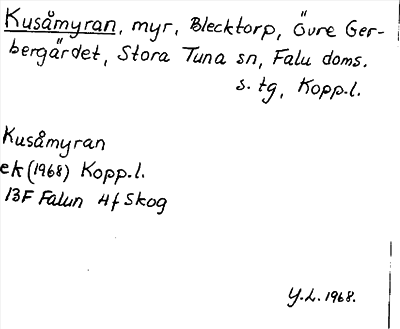 Kusåmyran, myr, Blecktorp, Övre Ger-
bergärdet, Stora Tuna sn, Falu doms.
s. tg, Kopp.l.
Kusåmyran
ek (1968) Kopp.l.
13F Falun 4f Skog
Y.L. 1968.